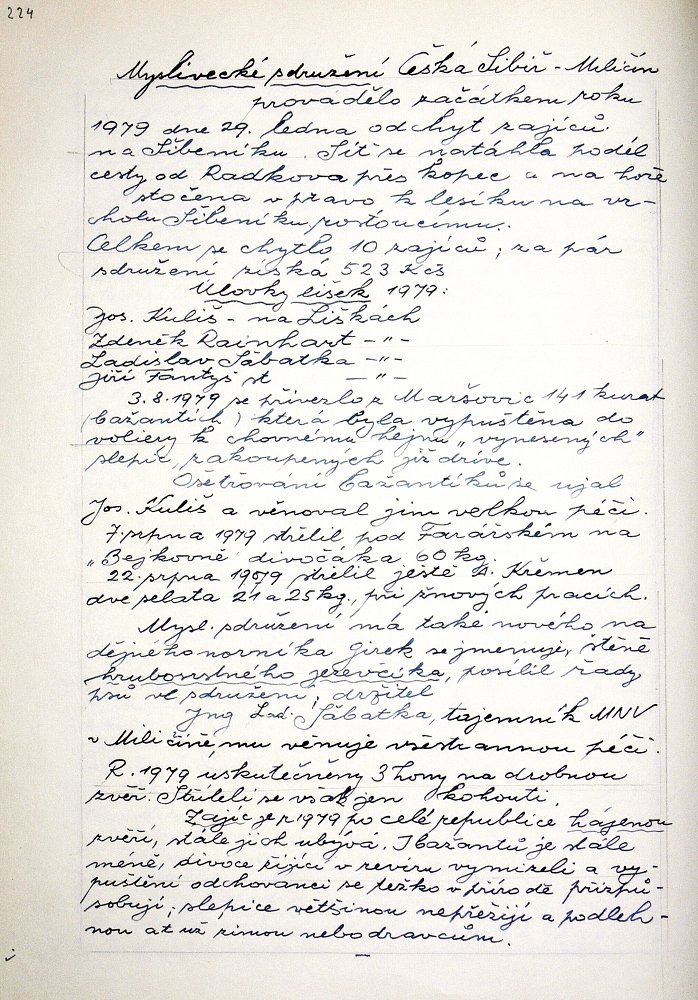 224
Myslivecké sdružení Česká Sibiř - Miličín
provádělo začátkem roku
1979 dne 29. ledna odchyt zajíců
na Šibeníku. Síť se natáhla podél
cesty od Radkova přes kopec a na hoře
stočena v pravo k lesíku na vr-
cholu Šibeníku rostoucímu.
Celkem se chytlo 10 zajíců; za pár
sdružení získá 523 Kčs
Úlovky lišek 1979:
Jos. Kuliš - na Liškách
Zdeněk Rainhart - " -
Ladislav Sábatka - " -
Jiří Fantyš st - " -
3.8.1979 se přivezlo z Maršovic 141 kuřat
(bažantích) která byla vypuštěna do
voliery k chovnému hejnu „vynesených"
slepic, zakoupených již dříve.
Ošetřování bažantíků se ujal
Jos. Kuliš a věnoval jim velkou péči.
7. srpna 1979 střelil pod Farářském na
„Bejkovně" divočáka 60 kg.
22. srpna 1979 střelil ještě A. Křemen
dvě selata 21 a 25 kg., při žňových pracích.
Mysl. sdružení má také nového na
dějného norníka Girek se jmenuje, štěně
hrubosrstného jezevčíka, posílil řady
psů ve sdružení; držitel
Jng Lad. Sábatka, tajemník MNV
v Miličíně, mu věnuje všestrannou péči.
R. 1979 uskutečněny 3 hony na drobnou
zvěř. Stříleli se však jen kohouti.
Zajíc je r 1979 po celé republice hájenou
zvěří, stále jich ubývá. I bažantů je stále
méně, divoce žijící v revíru vymizeli a vy-
puštění odchovanci se těžko v přírodě přizpů-
sobují; slepice většinou nepřežijí a podleh-
nou ať už zimou nebo dravcům.